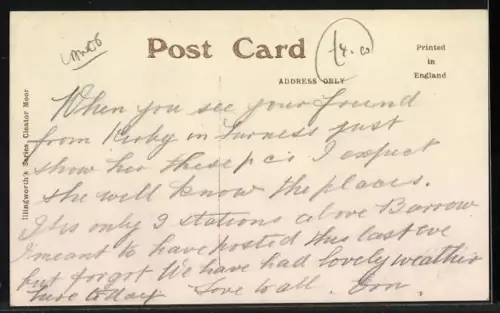 Post Card
ADDRESS ONLY
Printed
in
England
£4.00
Illingworth's Series, Cleator Moor
When you see your friend
from Kirby in Furness just
show her these p c's I expect
she will know the places.
It is only 3 stations above Barrow
I meant to have posted this last eve
but forgot We have had lovely weather
here today Love to all.